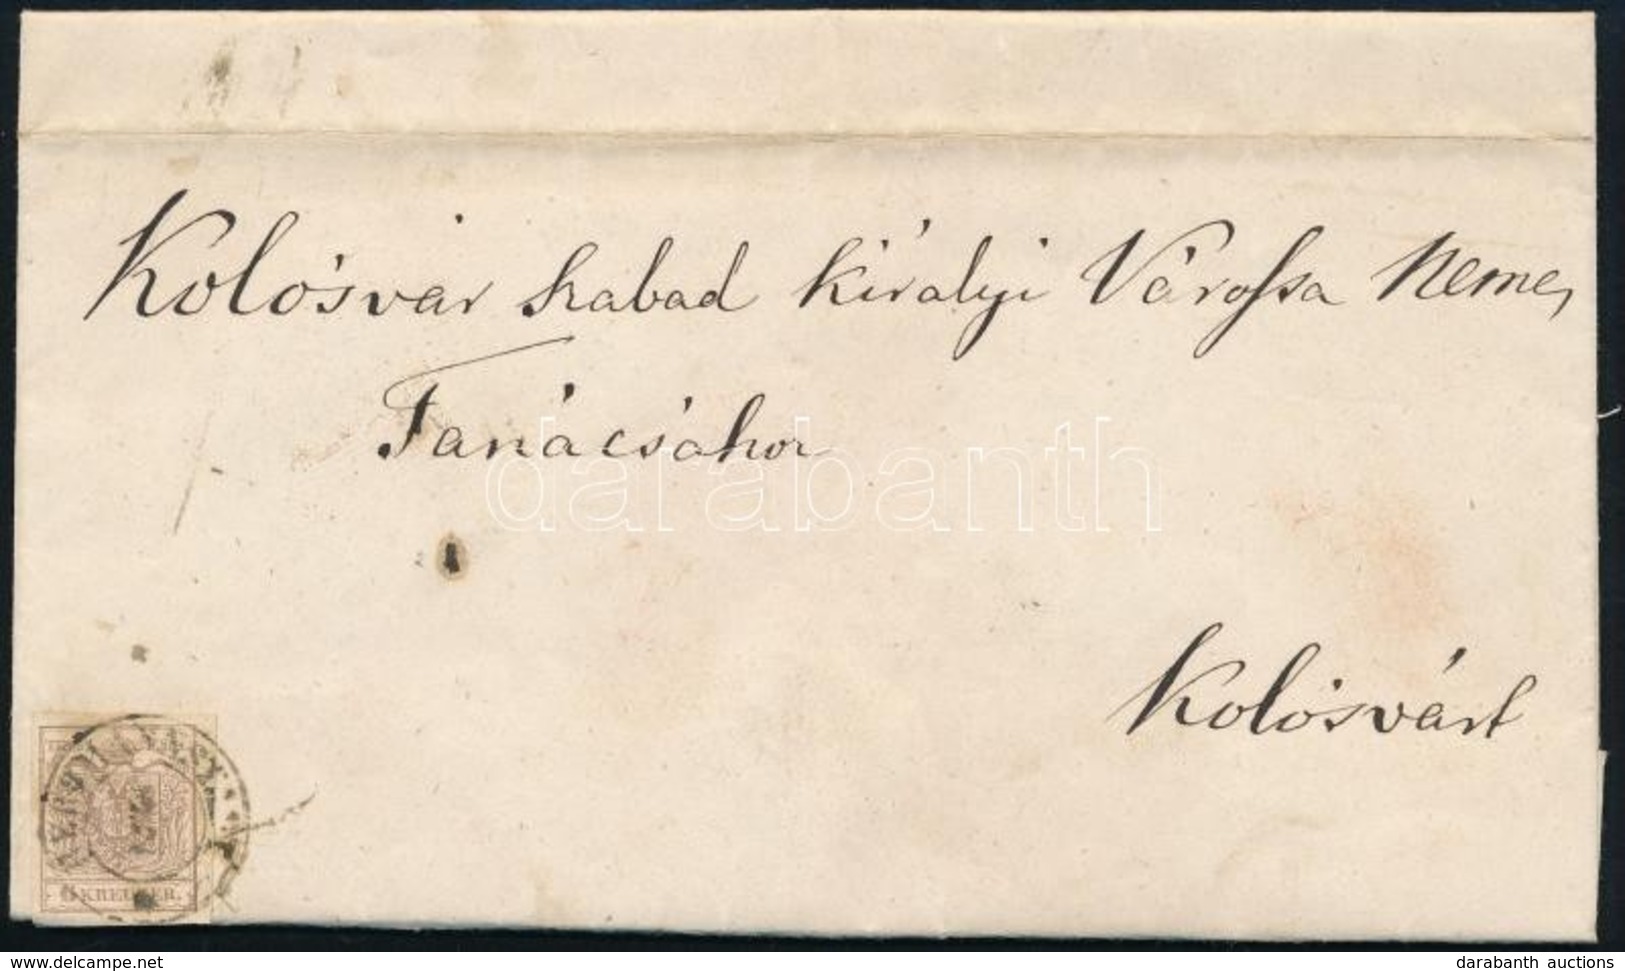 Kolósvár szabad királyi Várossa Nemes
Tanácsához
darabanth
Kolósvárt
6 KREUZER.
www.delcampe.net
darabanth auctions